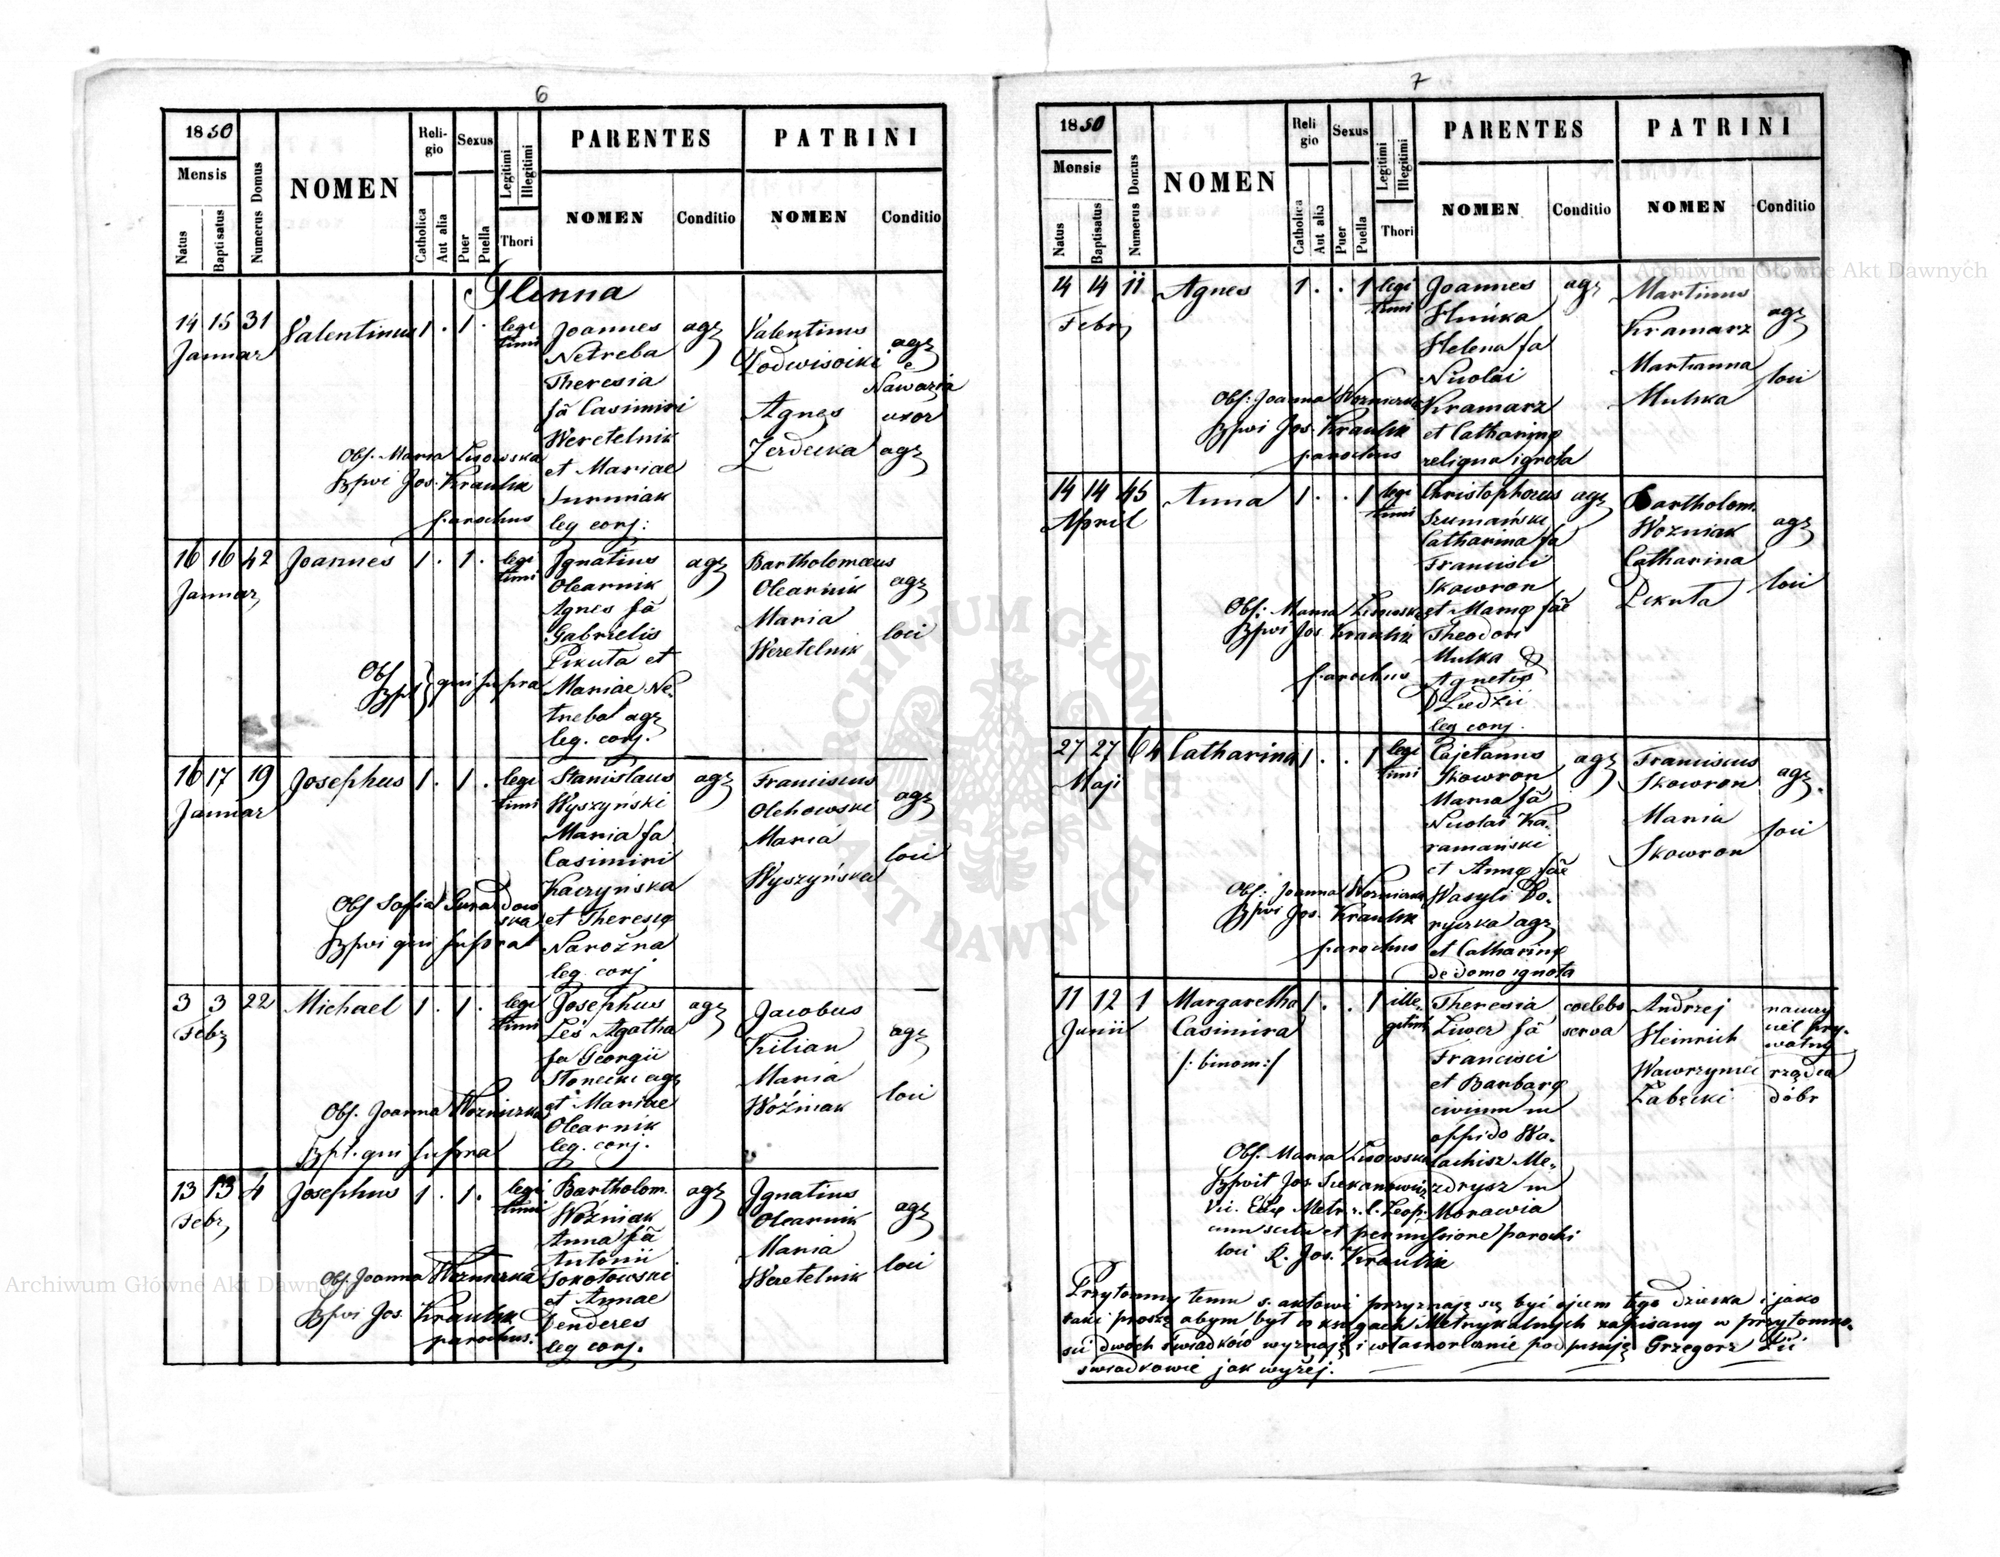 6
1850
Mensis
Natus
Baptisatus
Numerus Domus
NOMEN
Reli-
gio
Catholica
Aut alia
Sexus
Puer
Puella
Legitimi
Illegitimi
Thori
PARENTES
NOMEN
Conditio
PATRINI
NOMEN
Conditio
14 15 31 Valentinus 1 . 1 . legi
timi
Januar
Joannes
Netreba
Theresia
fa Casimiri
Weretelnik
et Mariae
leg conj:
agr
Valentinus
Agnes
agr
e
Nawaria
uxor
agr
Obs. Maria Lisowska
Bpvi Jos. Kraulik
parochus
16 16 42 Joannes 1 . 1 . legi
timi
Januar
Ignatius
Olearnik
Agnes fa
Gabrielis
Pikuta et
Mariae Ne-
treba agr
leg. conj.
agr
Bartholomaeus
Olearnik
Maria
Weretelnik
agr
loci
Obs
Bpt } qui supra
16 17 19 Josephus 1 . 1 . legi
timi
Januar
Stanislaus
Wyszyński
Maria fa
Casimiri
Kaczyńska
et Theresię
Narożna
leg. conj
agr
Franciscus
Olehowski
Maria
Wyszyńska
agr
loci
Obs Sofia
Bpvi qui supra
3 3 22 Michael 1 . 1 . legi
timi
Febr
Josephus
Leś Agatha
fa Georgii
Słonecki agr
et Mariae
Olearnik
leg. conj.
agr
Jacobus
Kilian
Maria
Woźniak
agr
loci
Obs. Joanna Wozniczka
Bpt. qui supra
13 13 4 Josephus 1 . 1 . legi
timi
Febr
Bartholom.
Woźniak
Anna fa
Antonii
Sokołowski
et Annae
Denderes
leg conj.
agr
Ignatius
Olearnik
Maria
Weretelnik
agr
loci
Obs. Joanna Wozniczka
Bpvi Jos. Kraulik
parochus.
7
1850
Mensis
Natus
Baptisatus
Numerus Domus
NOMEN
Reli
gio
Catholica
Aut alia
Sexus
Puer
Puella
Legitimi
Illegitimi
Thori
PARENTES
NOMEN
Conditio
PATRINI
NOMEN
Conditio
14 14 11 Agnes 1 . . 1 legi
timi
Febr
Joannes
Helena fa
Nicolai
Kramarz
et Catharinę
religna ignota
agr
Martinus
Kramarz
Marianna
Mulka
agr
loci
Obs: Joanna Wozniczka
Bpvi Jos. Kraulik
parochus
14 14 45 Anna 1 . . 1 legi
timi
April
Christophorus
Szumański
Catharina fa
Francisci
Skowron
et Marię fae
Theodori
Mulka &
Agnetis
leg conj.
agr
Bartholom.
Wozniak
Catharina
Pikuta
agr
loci
Obs: Maria Lisowska
Bpvi Jos Kraulik
parochus
27 27 64 Catharina 1 . . 1 legi
timi
Maji
Cajetanus
Skowron
Maria fa
Nicolai Ka-
ramański
et Annę fae
Wasyli Do-
ryczka agr
et Catharinę
de domo ignota
agr
Franciscus
Skowron
Maria
Skowron
agr.
loci
Obs: Joanna Wozniczka
Bpvi Jos. Kraulik
parochus
11 12 1 Margaretha 1 . . 1 ille-
gitimi
Junii
Casimira
/: binom:/
Theresia
Liwer fa
Francisci
et Barbarę
civium in
oppido Wa-
lachisz Me-
zdrysz in
Morawia
coelebs
serva
Andrzej
Heinrich
Wawrzyniec
Zabęcki
nauczy
ciel pry-
watny
rządca
dóbr
Obs. Maria Lisowska
cum scitu et permissione parochi
loci R. Jos. Kraulik
Przytomny temu s. aktowi przyznaję się być ojcem tego dziecka i jako
taki proszę abym był w księgach Metrykalnych zapisany w przytomno-
ści dwóch świadków wyznaję i własnoręcznie podpisuję Grzegorz
świadkowie jak wyżej.
Archiwum Główne Akt Dawnych
Archiwum Główne Akt Dawnych
ARCHIWUM GŁÓWNE AKT DAWNYCH